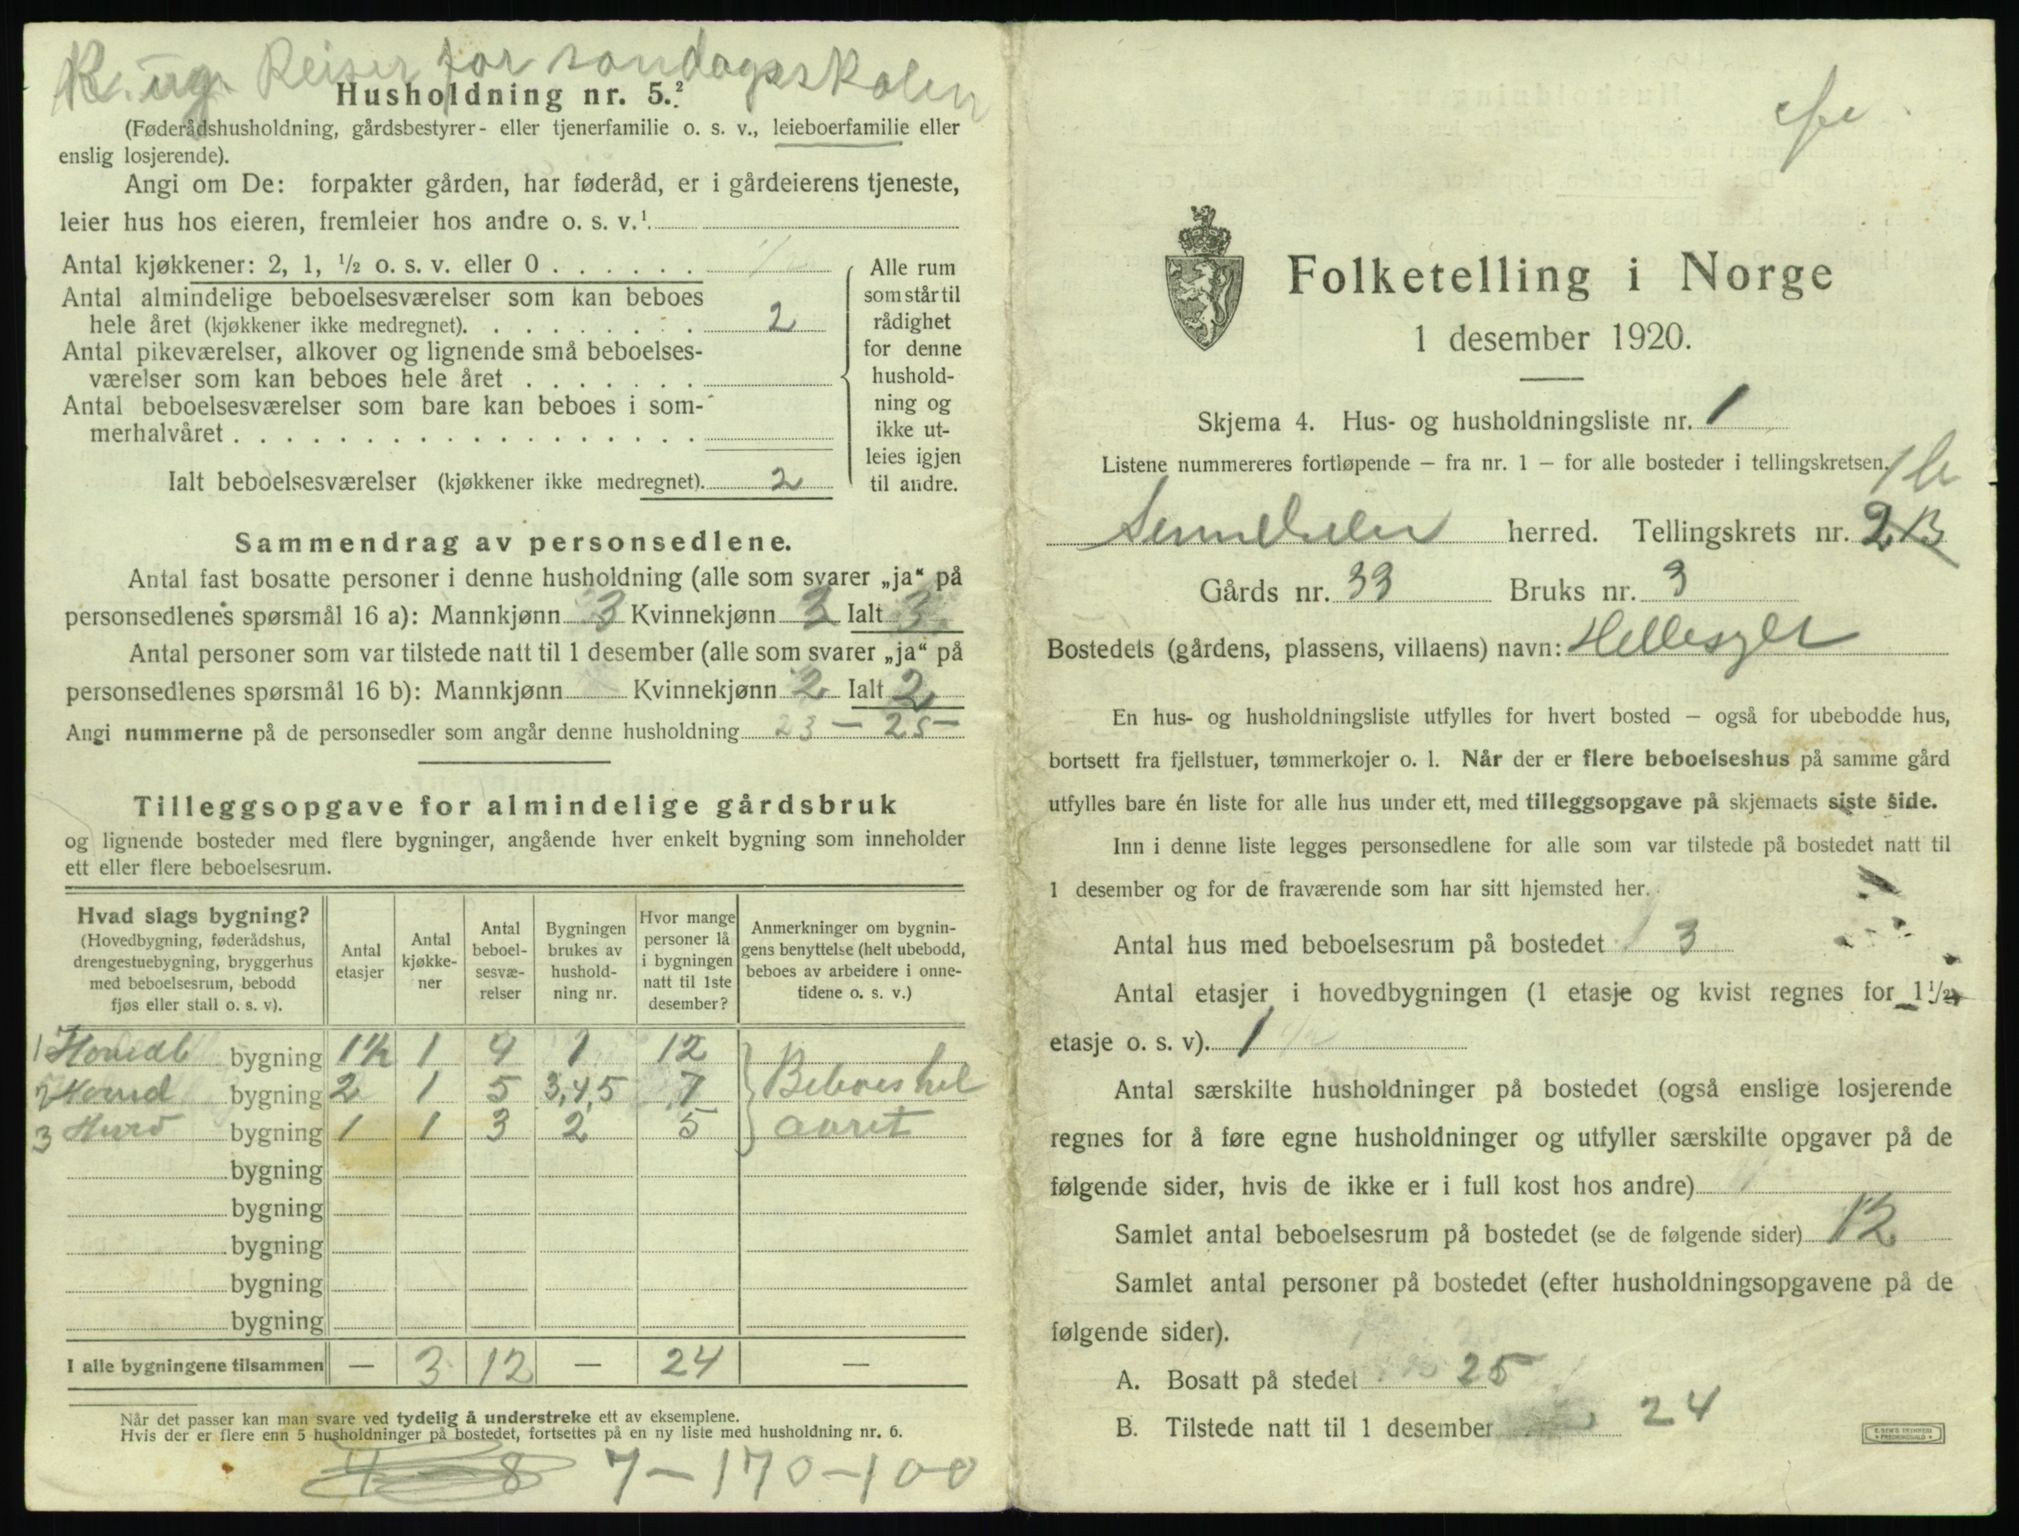 K. ug. Reiser for søndagsskolen
Husholdning nr. 5.²
(Føderådshusholdning, gårdsbestyrer- eller tjenerfamilie o. s. v., leieboerfamilie eller
enslig losjerende).
Angi om De: forpakter gården, har føderåd, er i gårdeierens tjeneste,
leier hus hos eieren, fremleier hos andre o. s. v.¹
Antal kjøkkener: 2, 1, ½ o. s. v. eller 0
Antal almindelige beboelsesværelser som kan beboes
hele året (kjøkkener ikke medregnet). 2
Antal pikeværelser, alkover og lignende små beboelses-
værelser som kan beboes hele året
Antal beboelsesværelser som bare kan beboes i som-
merhalvåret
Ialt beboelsesværelser (kjøkkener ikke medregnet). 2
Alle rum
som står til
rådighet
for denne
hushold-
ning og
ikke ut-
leies igjen
til andre.
Sammendrag av personsedlene.
Antal fast bosatte personer i denne husholdning (alle som svarer „ja“ på
personsedlenes spørsmål 16 a): Mannkjønn 3 Kvinnekjønn 3 Ialt 3
Antal personer som var tilstede natt til 1 desember (alle som svarer „ja“ på
personsedlenes spørsmål 16 b): Mannkjønn Kvinnekjønn 2 Ialt 2
Angi nummerne på de personsedler som angår denne husholdning 23 – 25 –
Tilleggsopgave for almindelige gårdsbruk
og lignende bosteder med flere bygninger, angående hver enkelt bygning som inneholder
ett eller flere beboelsesrum.
Hvad slags bygning?
(Hovedbygning, føderådshus,
drengestuebygning, bryggerhus
med beboelsesrum, bebodd
fjøs eller stall o. s. v).
Antal
etasjer
Antal
kjøkke-
ner
Antal
beboel-
sesvæ-
relser
Bygningen
brukes av
hushold-
ning nr.
Hvor mange
personer lå
i bygningen
natt til 1ste
desember?
Anmerkninger om bygnin-
gens benyttelse (helt ubebodd,
beboes av arbeidere i onne-
tidene o. s. v.)
1 Hovedb bygning 1½ 1 4 1 12
2 Hovud bygning 2 1 5 3,4,5 7 Beboes hel
3 bygning 1 1 3 2 5 aaret
bygning
bygning
bygning
bygning
bygning
I alle bygningene tilsammen — 3 12 — 24 —
Når det passer kan man svare ved tydelig å understreke ett av eksemplene.
Hvis der er flere enn 5 husholdninger på bostedet, fortsettes på en ny liste med husholdning nr. 6.
4 – 8 7 – 170 – 100
Folketelling i Norge
1 desember 1920.
Skjema 4. Hus- og husholdningsliste nr. 1
Listene nummereres fortløpende – fra nr. 1 – for alle bosteder i tellingskretsen.
1 b
herred. Tellingskrets nr. 2 B
Gårds nr. 33 Bruks nr. 3
Bostedets (gårdens, plassens, villaens) navn: Hellesylt
En hus- og husholdningsliste utfylles for hvert bosted – også for ubebodde hus,
bortsett fra fjellstuer, tømmerkojer o. l. Når der er flere beboelseshus på samme gård
utfylles bare én liste for alle hus under ett, med tilleggsopgave på skjemaets siste side.
Inn i denne liste legges personsedlene for alle som var tilstede på bostedet natt til
1 desember og for de fraværende som har sitt hjemsted her.
Antal hus med beboelsesrum på bostedet 3
Antal etasjer i hovedbygningen (1 etasje og kvist regnes for 1½
etasje o. s. v). 1
Antal særskilte husholdninger på bostedet (også enslige losjerende
regnes for å føre egne husholdninger og utfyller særskilte opgaver på de
følgende sider, hvis de ikke er i full kost hos andre)
Samlet antal beboelsesrum på bostedet (se de følgende sider) 12
Samlet antal personer på bostedet (efter husholdningsopgavene på de
følgende sider).
A. Bosatt på stedet 25
B. Tilstede natt til 1 desember 24